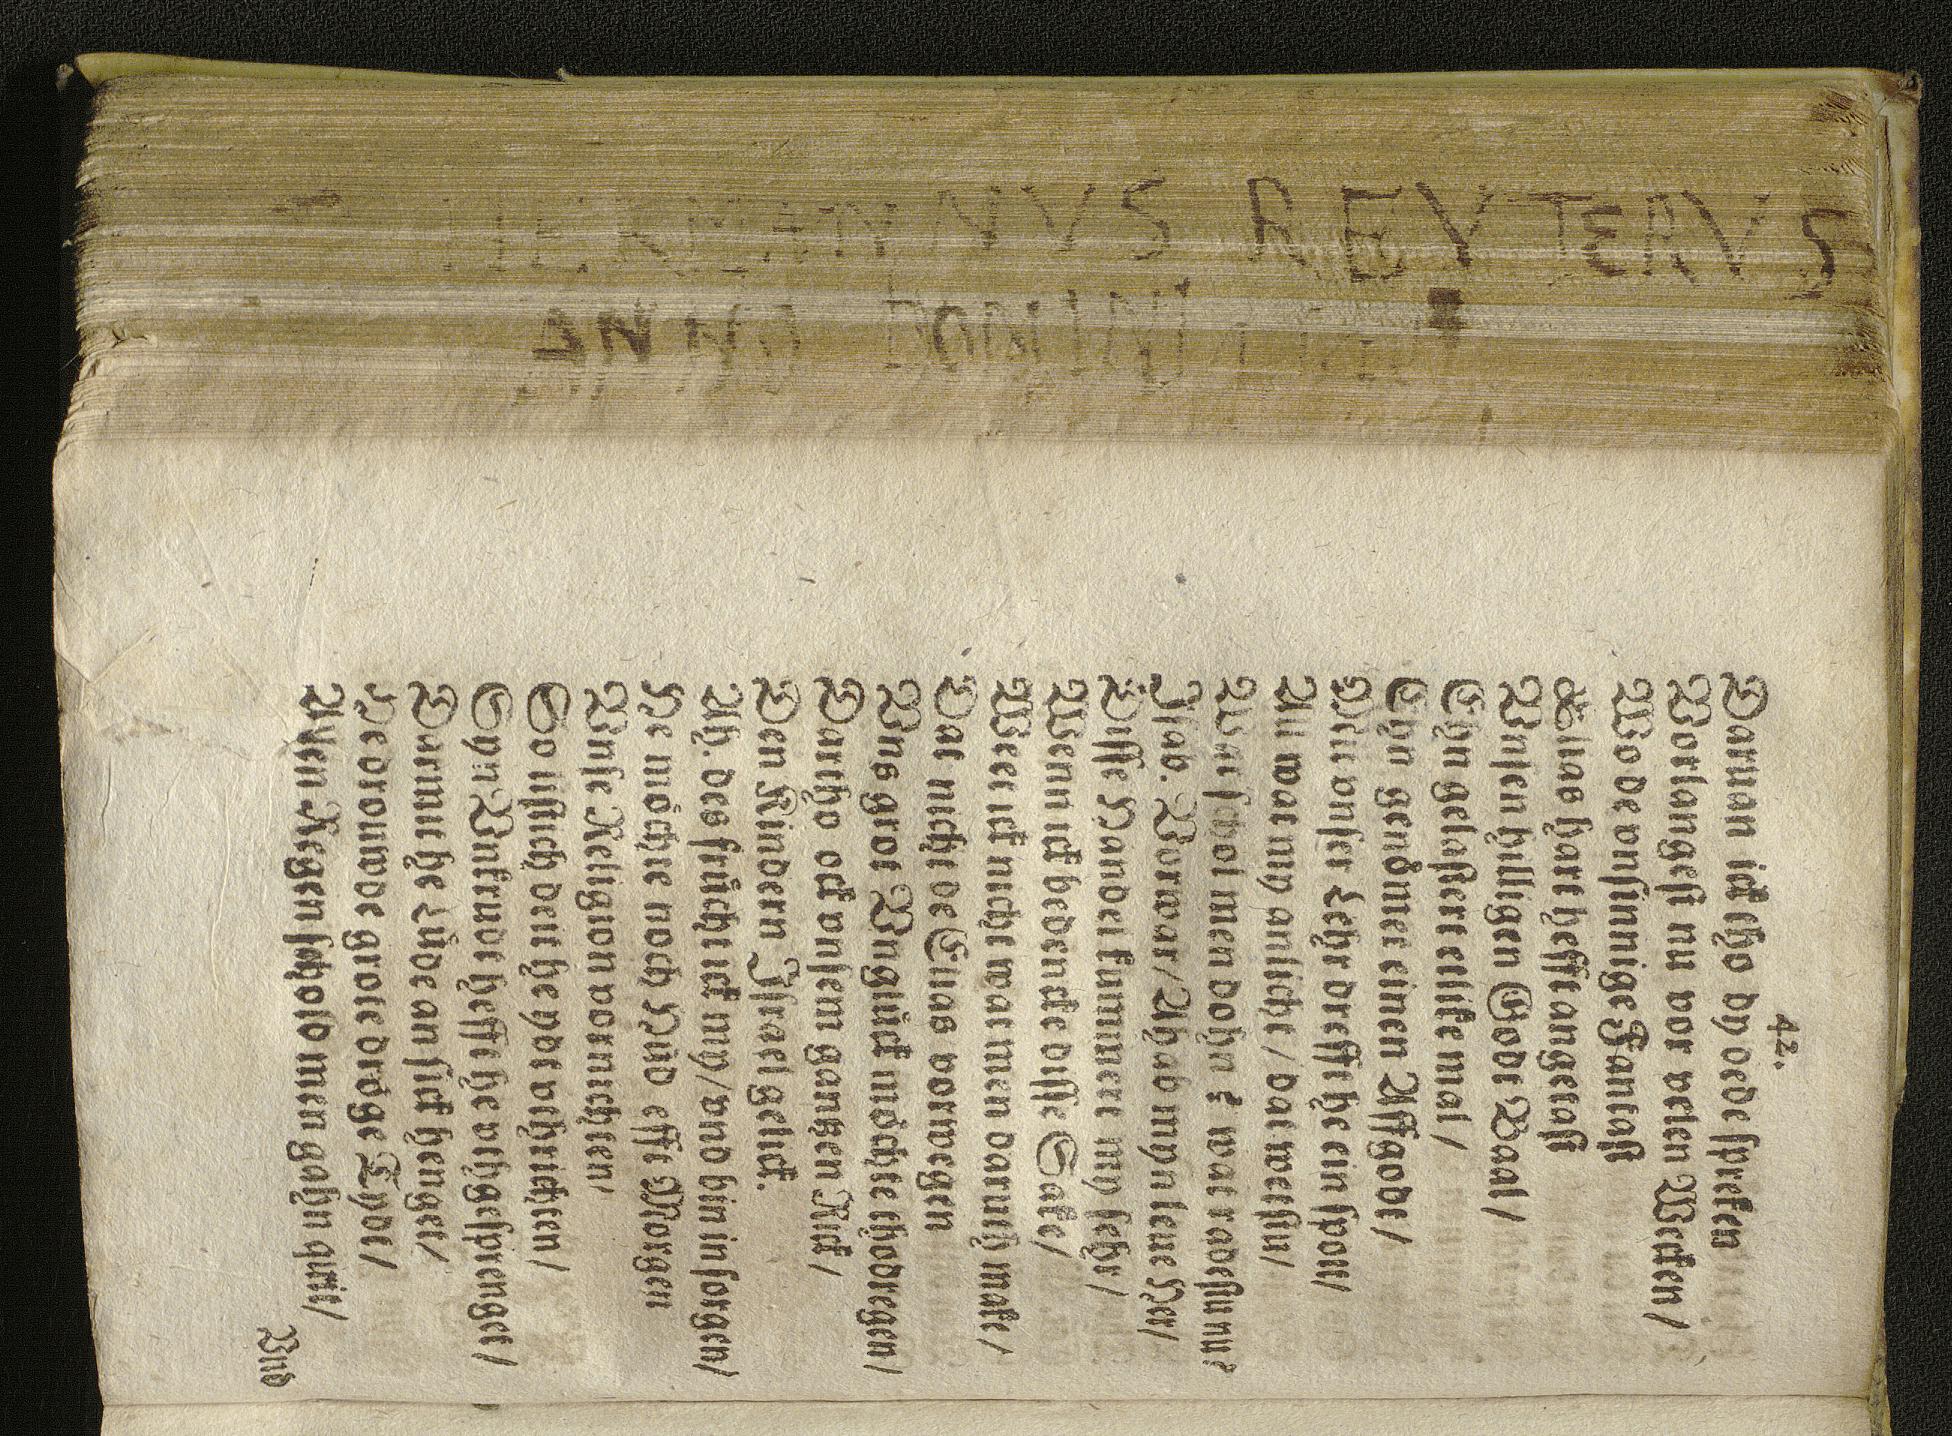 HERMANNVS REVTERVS
ANNO DOMINI
42.
Darvan ick tho dy dede spreken
Vorlangest nu vor velen Weken /
Wo de vnsinnige Fantast
Elias hart hefft angetast
Vnsen hilligen Godt Baal /
Ehn gelastert etlike mal /
Ehn genömet einen Affgodt /
Detvnser Lehr drefft he ein spott /
All wat my anlicht / dat wetstu /
Wat schol men dohn? wat radestu nu?
Jsab. Vorwar / Ahab myn leue Her /
Disse Handel kummert my sehr /
Wenn ick bedencke disse Sake /
Weet ick nicht wat men daruth make /
Dat nicht de Elias vorwegen
Vns grot Vnglück möchte thodregen /
Dartho ock vnsem gantzen Rick /
Den Kindern Jsrael gelick.
Ah. des frücht ick my / vnd bin in sorgen /
He möchte noch Hüd efft Morgen
Vnse Religion vornichten /
So listich deit he ydt vthrichten /
Syn Vnfrudt hefft he vthgesprenget /
Darmit he Lüde an sick henget /
He drouwde grote dröge Tydt /
Allen Regen scholdmen gahn quitt /
Vnd